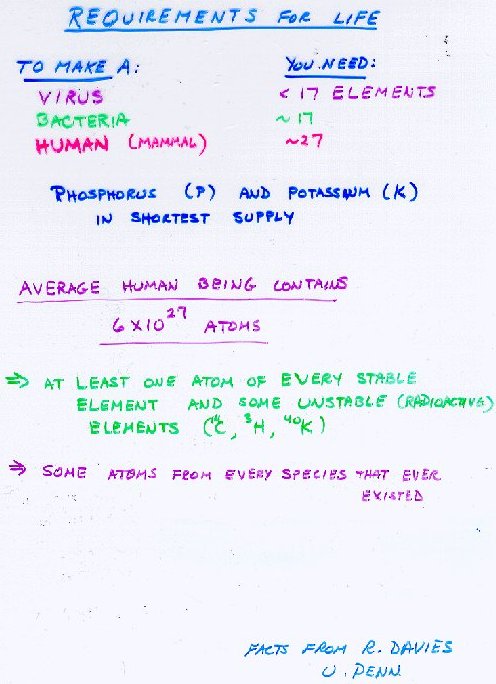 REQUIREMENTS FOR LIFE
TO MAKE A: YOU NEED:
VIRUS < 17 ELEMENTS
BACTERIA ~17
HUMAN (MAMMAL) ~27
PHOSPHORUS (P) AND POTASSIUM (K)
IN SHORTEST SUPPLY
AVERAGE HUMAN BEING CONTAINS
6 X 10²⁷ ATOMS
⇒ AT LEAST ONE ATOM OF EVERY STABLE
ELEMENT AND SOME UNSTABLE (RADIOACTIVE)
ELEMENTS (¹⁴C, ³H, ⁴⁰K)
⇒ SOME ATOMS FROM EVERY SPECIES THAT EVER
EXISTED
FACTS FROM R. DAVIES
U. PENN